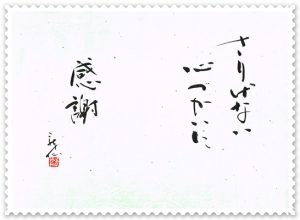 さりげない
心づかいに
感謝